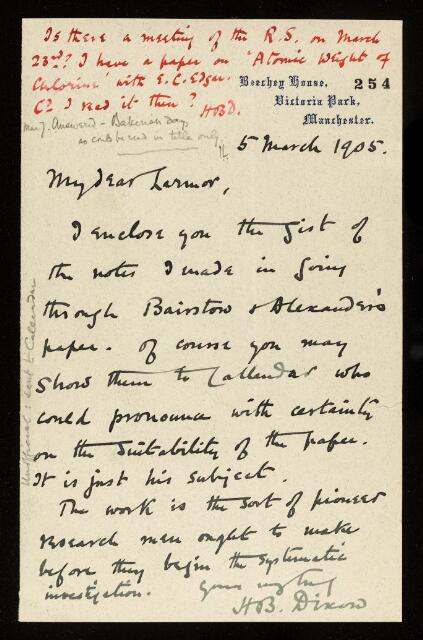 Is there a meeting of the R.S. on March
23rd? I have a paper on 'Atomic Weight of
Chlorine' with E.C. Edgar.
Cd I read it then? HBD.
Beechey House,
Victoria Park,
Manchester.
254
Mar 7. Answered - Bakerian day
so could be read in title only
5 March 1905.
My dear Larmor,
I enclose you the gist of
the notes I made in going
through Bairstow & Alexander's
paper. Of course you may
show them to Callendar who
could pronounce with certainty
on the suitability of the paper.
It is just his subject.
The work is the sort of pioneer
research men ought to make
before they begin the systematic
investigation.
Yours very truly
HB. Dixon
sent to Callendar